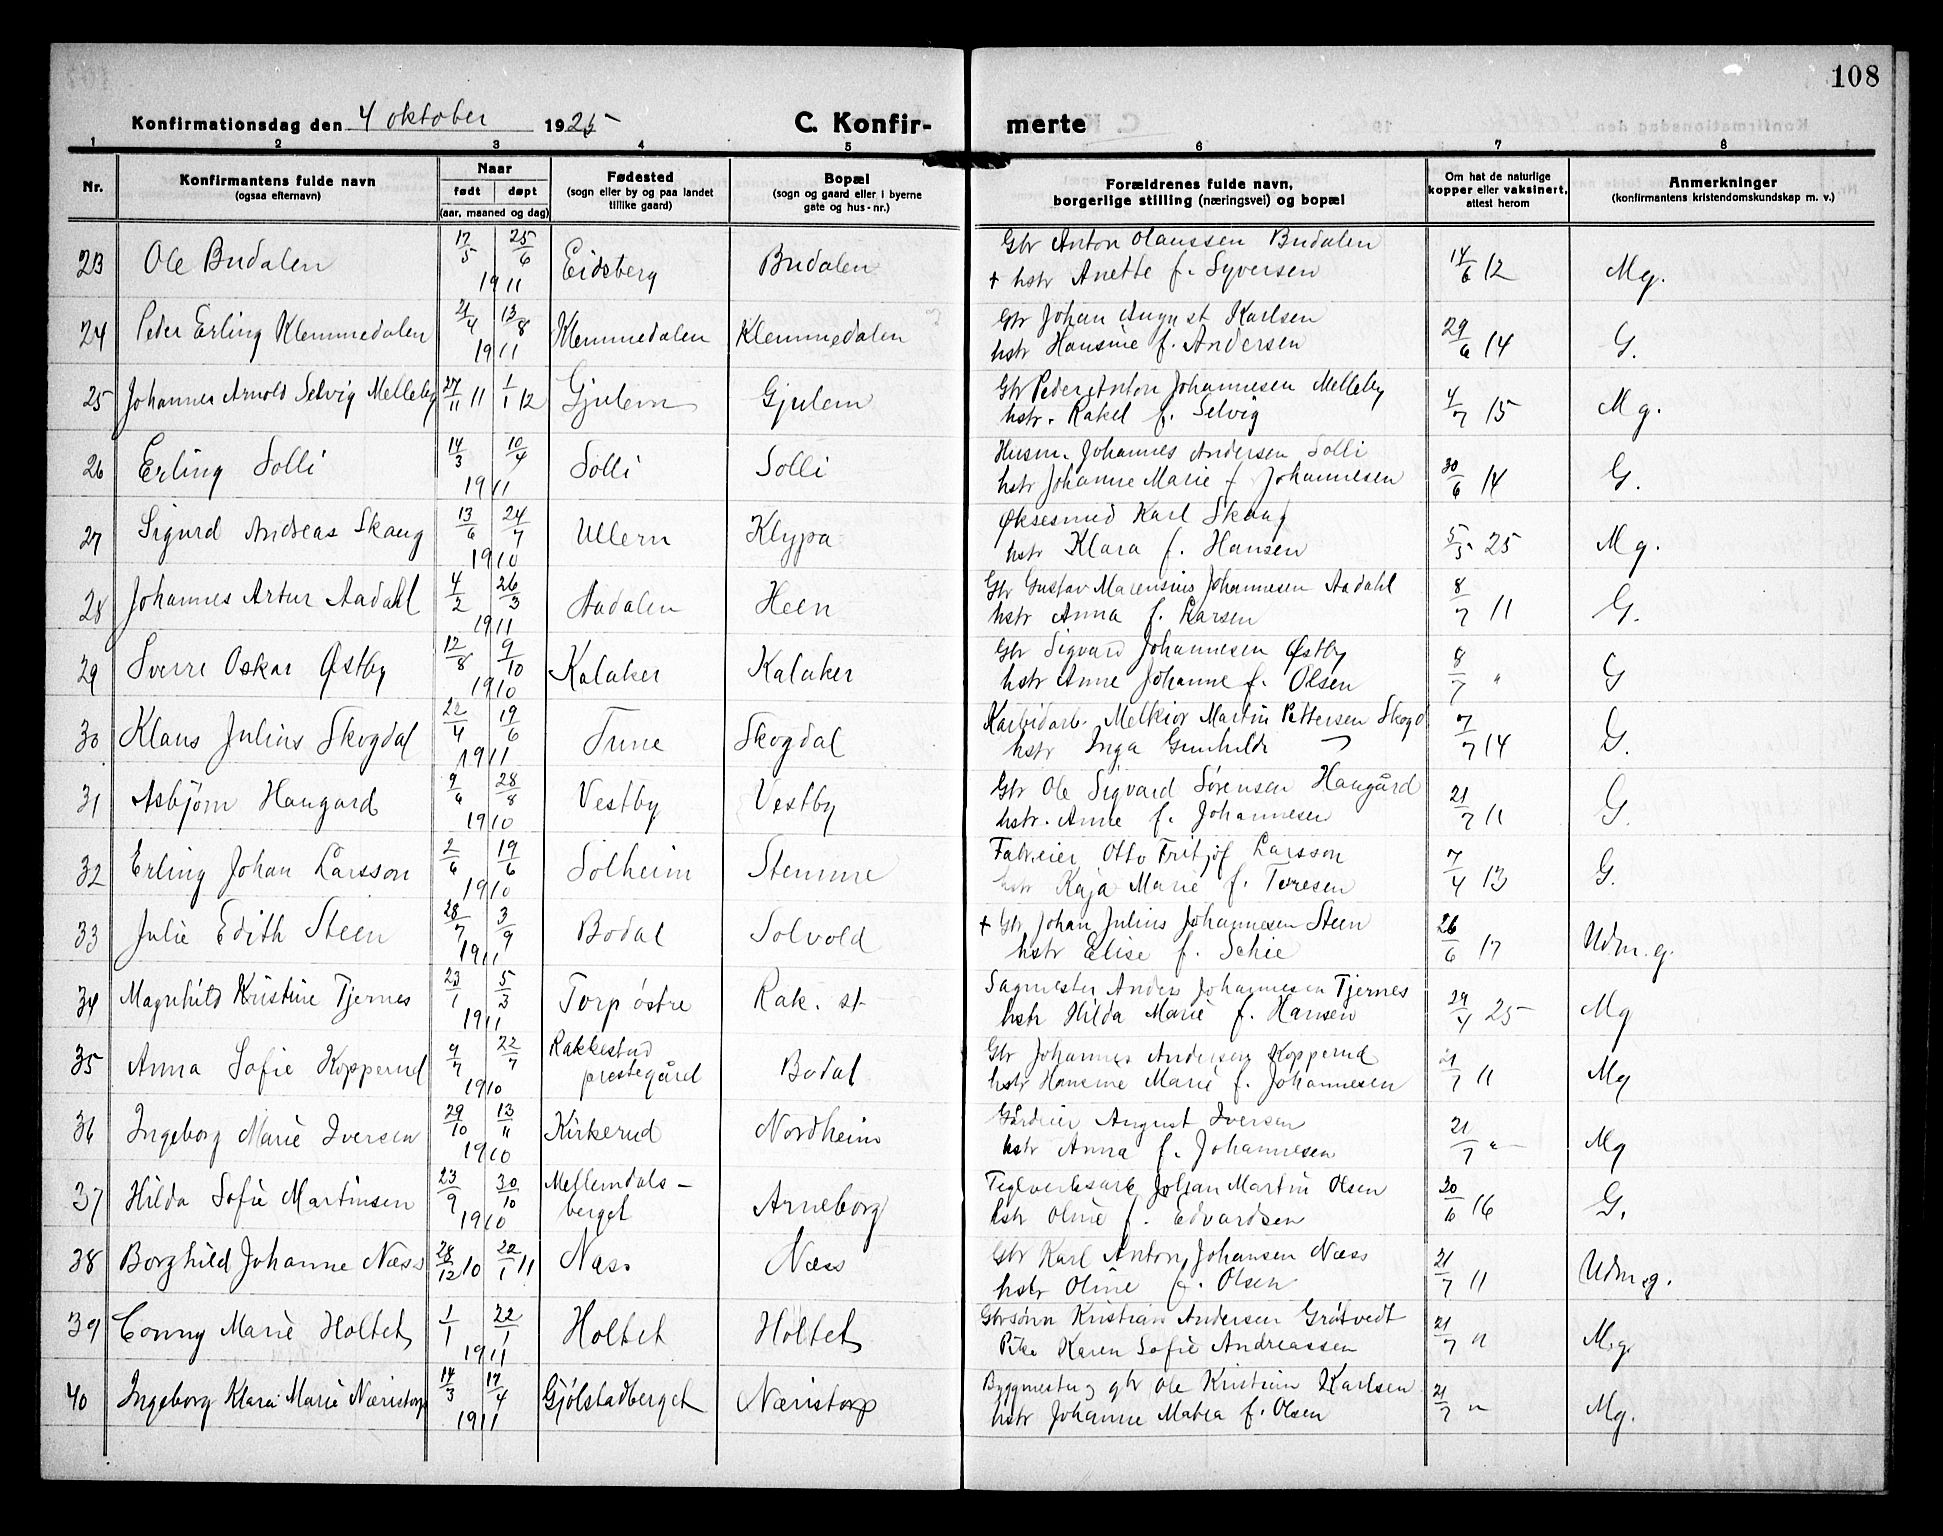 108
Konfirmationsdag den 4 oktober 1925
C. Konfir- merte
1 2 3 4 5 6 7 8
Nr.
Konfirmantens fulde navn
(ogsaa efternavn)
Naar
født døpt
(aar, maaned og dag)
Fødested
(sogn eller by og paa landet
tillike gaard)
Bopæl
(sogn og gaard eller i byerne
gate og hus-nr.)
Forældrenes fulde navn,
borgerlige stilling (næringsvei) og bopæl
Om hat de naturlige
kopper eller vaksinert,
attest herom
Anmerkninger
(konfirmantens kristendomskundskap m. v.)
23 Ole Budalen 17/5 25/6 1911 Eidsberg Budalen Gbr Anton Olaussen Budalen
+ hstr Anette f. Syversen 14/6 12 Mg.
24 Peder Erling Klemmedalen 21/4 13/8 1911 Klemmedalen Klemmedalen Gbr Johan August Karlsen
hstr Hansine f. Andersen 29/6 14 G.
25 Johannes Arnold Selvig Melleby 27/11 11 1/1 12 Gjulem Gjulem Gbr Peder Anton Johannesen Melleby
hstr. Rakel f. Selvig 4/7 15 Mg.
26 Erling Solli 14/3 10/4 1911 Solli Solli Husm. Johannes Andersen Solli
hstr Johanne Marie f Johannesen 30/6 14 G.
27 Sigurd Andreas Skaug 13/6 24/7 1910 Ullern Klypa Øksesmed Karl Skaug
hstr Klara f. Hansen 5/5 25 Mg.
28 Johannes Artur Aadahl 4/2 26/3 1911 Aadalen Heen Gbr Gustav Marensius Johannesen Aadahl
hstr Anna f. Larsen 8/7 11 G.
29 Sverre Oskar Østby 12/8 9/10 1910 Kalaker Kalaker Gbr Sigvard Johannesen Østby
hstr Anne Johanne f. Olsen 8/7 " G
30 Klaus Julius Skogdal 22/4 19/6 1911 Tune Skogdal Karbidarb. Melkior Martin Pettersen Skogd
hstr Inga Gunhilde 7/7 14 G.
31 Asbjørn Haugard 9/6 28/8 1910 Vestby Vestby Gbr Ole Sigvard Sørensen Haugård
hstr. Anne f. Johannesen 21/7 11 G.
32 Erling Johan Larsson 2/6 19/6 1910 Solheim Stemme Otto Fritjof Larsson
hstr Kaja Marie f. Toresen 7/4 13 G.
33 Julie Edith Steen 28/7 3/9 1911 Bodal Solvold + Gbr Johan Julius Johannesen Steen
hstr Elise f. Schie 26/6 17 Udm.g.
34 Magnhild Kristine Tjernes 23/1 5/3 1911 Torp østre Rak. st Sagmester Anders Johannesen Tjernes
hstr Hilda Marie f. Hansen 29/4 25 Mg
35 Anna Sofie Kopperud 9/7 22/7 1910 Rakkestad
prestegård Bodal Gbr Johannes Andersen Kopperud
hstr Hansine Marie f. Johannesen 21/7 11 Mg
36 Ingeborg Marie Iversen 29/10 13/11 1910 Kirkerud Nordheim Gårdeier August Iversen
hstr Anna f. Johannesen 21/7 " Mg
37 Hilda Sofie Martinsen 23/9 30/10 1910 Mellemdals-
berget Arneborg Teglverksarb Johan Martin Olsen
hstr Oline f. Edvardsen 30/6 16 G.
38 Borghild Johanne Næss 28/12 10 22/1 11 Næss Næss Gbr Karl Anton Johansen Næss
hstr Oline f. Olsen 21/7 11 Udm.g.
39 Conny Marie Holtet 1/1 22/1 1911 Holtet Holtet Gbrsønn Kristian Andersen Gråtvedt
Pike Karen Sofie Andreassen 21/7 " M.g.
40 Ingeborg Klara Marie Næristorp 14/3 17/4 1911 Gjølstadberget Næristorp Byggmester og gbr Ole Kristian Karlsen
hstr Johanne Matea f. Olsen 21/7 " Mg.